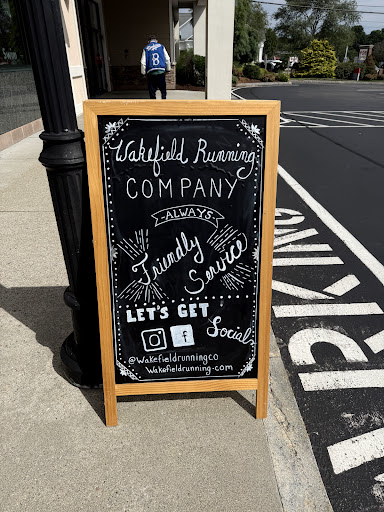 Wakefield Running
COMPANY
-ALWAYS-
Friendly
Service
LET'S GET
Social
f
@wakefieldrunningco
Wakefieldrunning.com
B